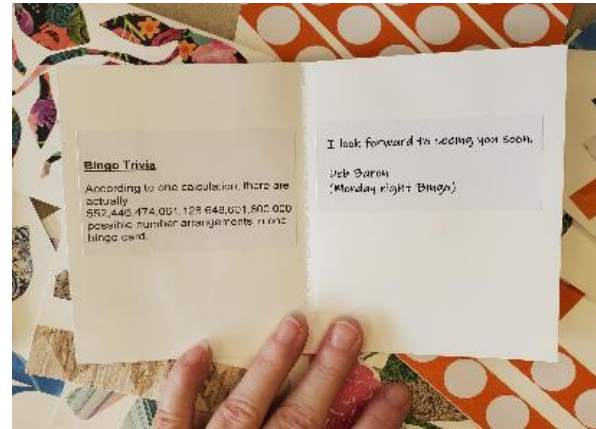 Bingo Trivia
According to one calculation, there are
actually
552,446,474,061,128,648,601,600,000
possible number arrangements in one
bingo card.
I look forward to seeing you soon.
Deb Baron
(Monday night Bingo)